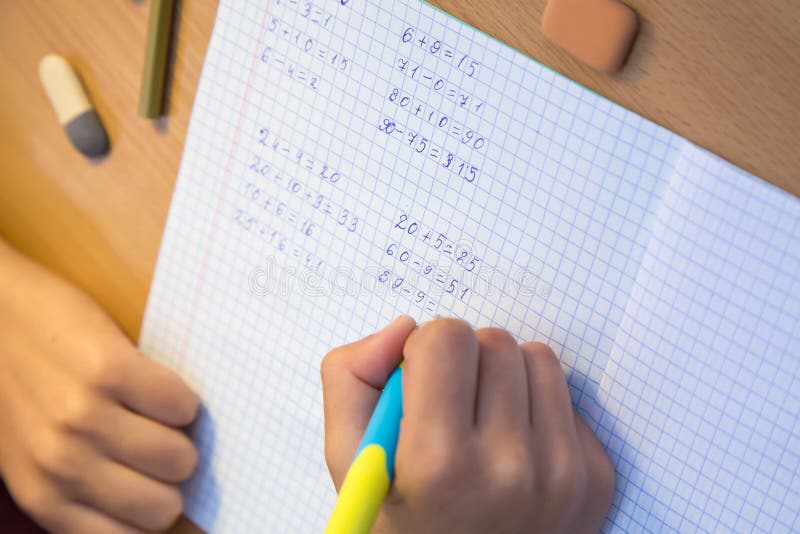 -3=1
5+10=15
6-4=2
24-4=20
20+10+3=33
10+6=16
25+16=41
6+9=15
71-0=71
80+10=90
90-75=315
20+5=25
60-9=51
89-9=
dreamstime